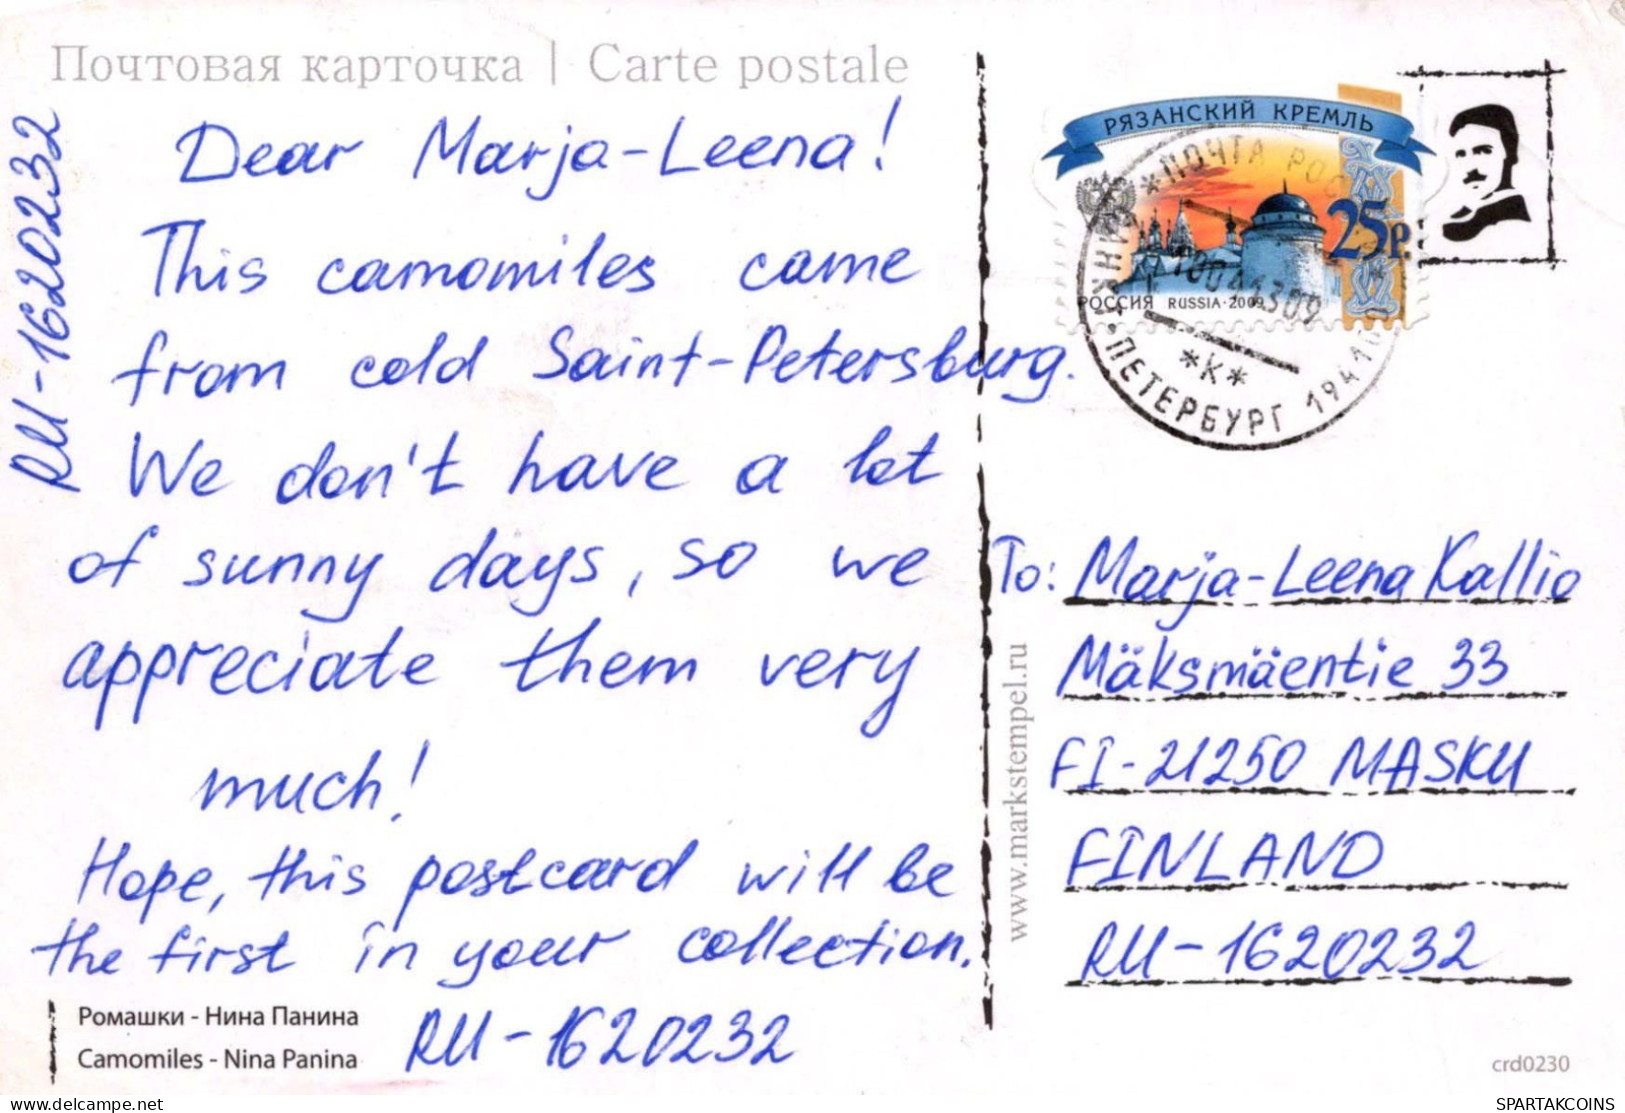 Почтовая карточка | Carte postale
RU-1620232
Dear Marja-Leena!
This camomiles came
from cold Saint-Petersburg.
We don't have a lot
of sunny days, so we
appreciate them very
much!
Hope, this postcard will be
the first in your collection.
RU-1620232
Ромашки - Нина Панина
Camomiles - Nina Panina
www.markstempel.ru
РЯЗАНСКИЙ КРЕМЛЬ
25р.
РОССИЯ RUSSIA·2009
*ПОЧТА РОС
ПЕТЕРБУРГ 19410
*К*
To: Marja-Leena Kallio
Mäksmäentie 33
FI-21250 MASKU
FINLAND
RU-1620232
crd0230
delcampe.net
SPARTAKCOINS